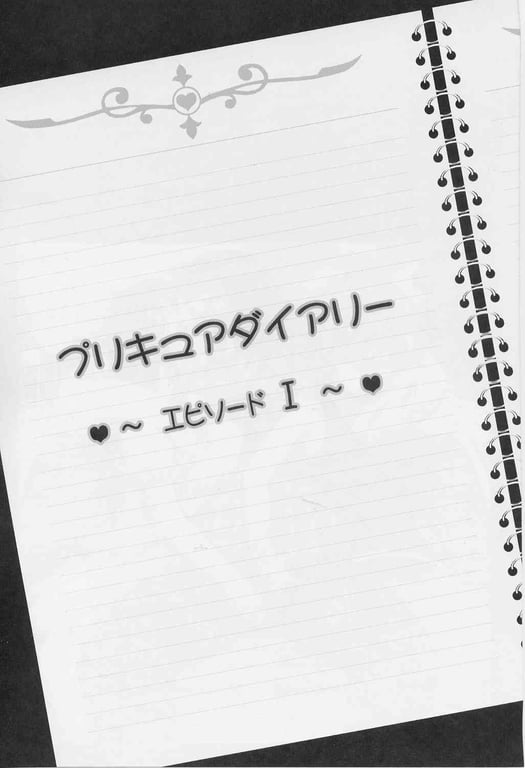 プリキュアダイアリー
♥ ～ エピソード I ～ ♥